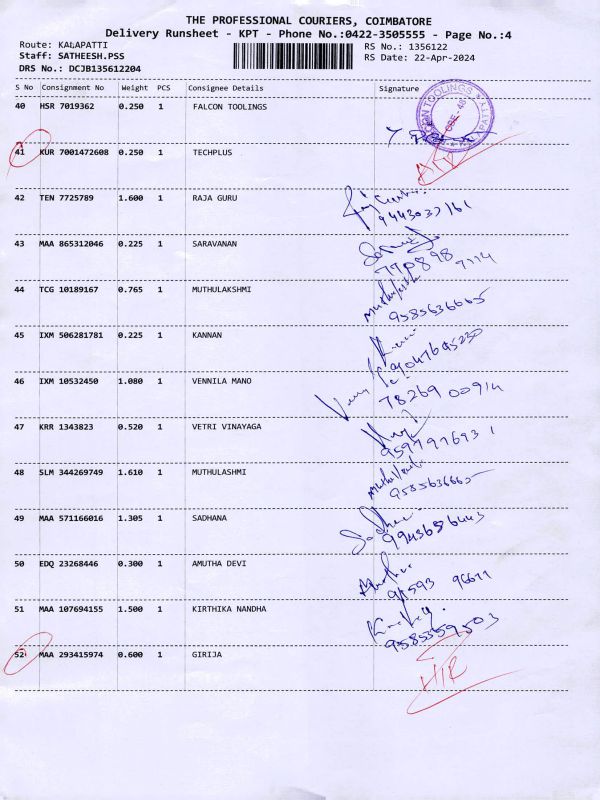 THE PROFESSIONAL COURIERS, COIMBATORE
Delivery Runsheet - KPT - Phone No.:0422-3505555 - Page No.:4
Route: KALAPATTI
RS No.: 1356122
Staff: SATHEESH.PSS
RS Date: 22-Apr-2024
DRS No.: DCJB135612204
S No Consignment No Weight PCS Consignee Details Signature
40 HSR 7019362 0.250 1 FALCON TOOLINGS
41 KUR 7001472608 0.250 1 TECHPLUS
42 TEN 7725789 1.600 1 RAJA GURU
9443033161
43 MAA 865312046 0.225 1 SARAVANAN
44 TCG 10189167 0.765 1 MUTHULAKSHMI
9585636665
45 IXM 506281781 0.225 1 KANNAN
46 IXM 10532450 1.080 1 VENNILA MANO
78269 00914
47 KRR 1343823 0.520 1 VETRI VINAYAGA
9597976931
48 SLM 344269749 1.610 1 MUTHULASHMI
9585636665
49 MAA 571166016 1.305 1 SADHANA
50 EDQ 23268446 0.300 1 AMUTHA DEVI
51 MAA 107694155 1.500 1 KIRTHIKA NANDHA
9585359503
52 MAA 293415974 0.600 1 GIRIJA